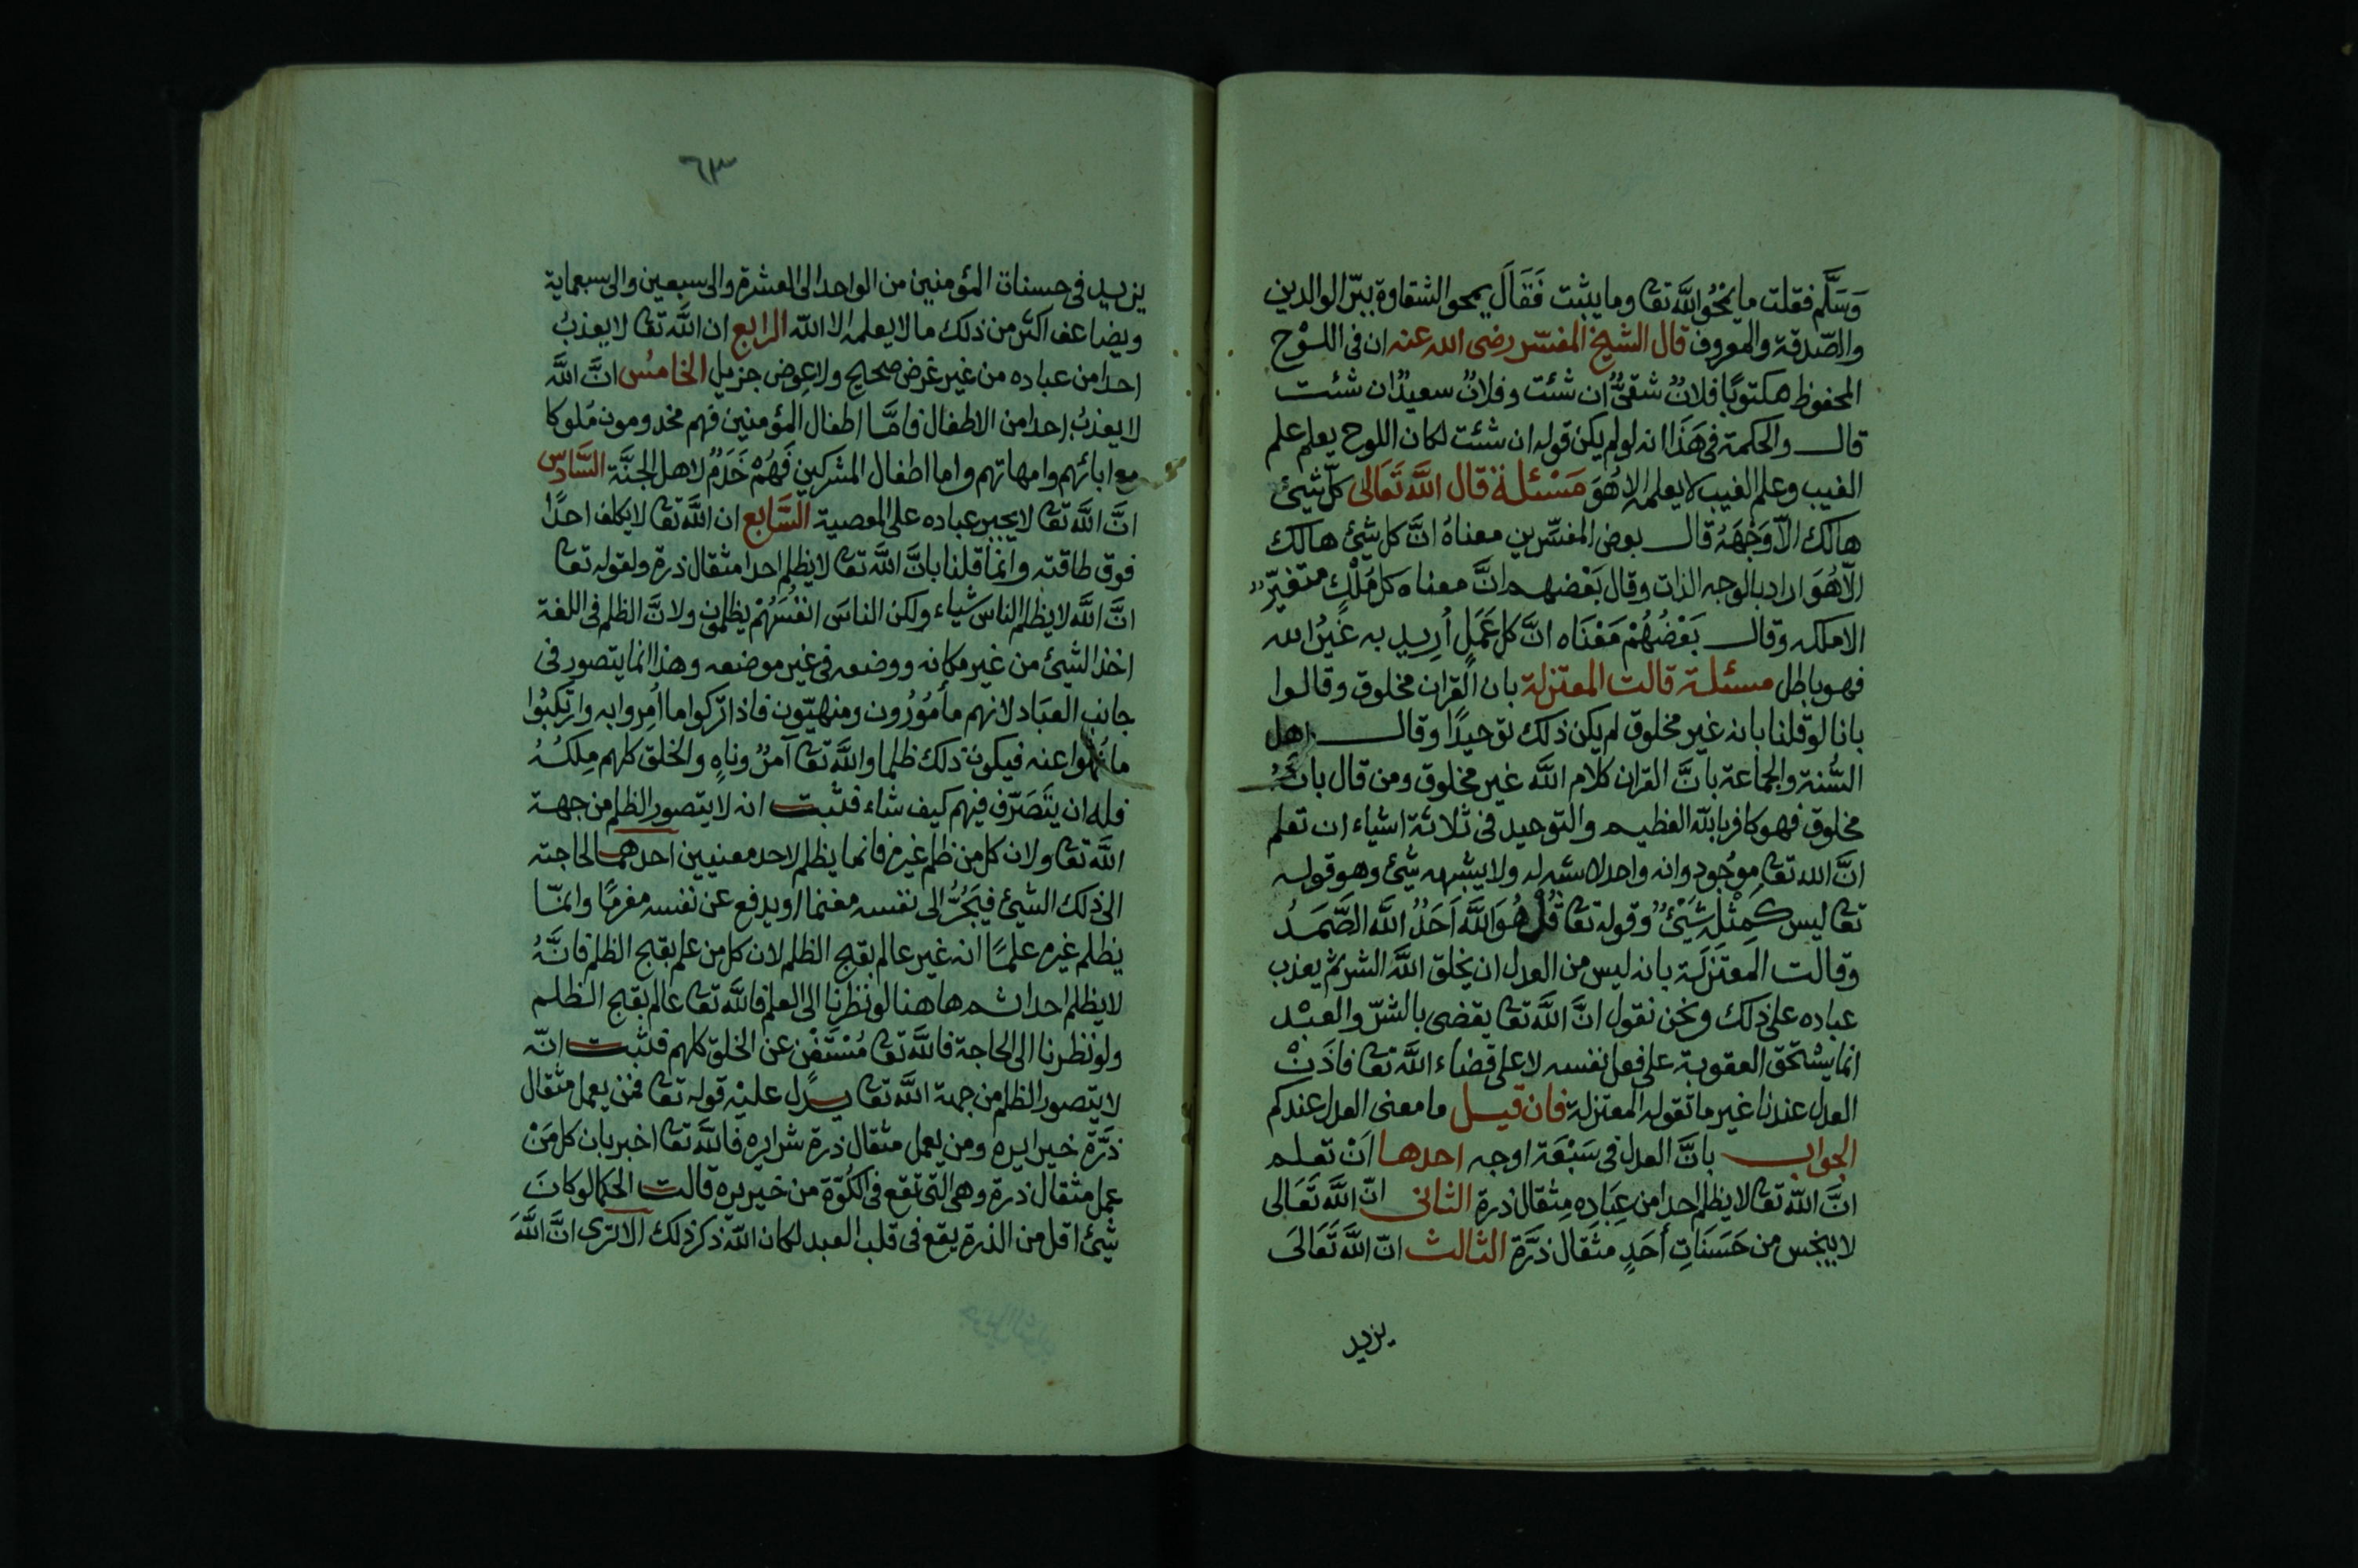 وَسَلَّم فقلت ما يمْحُو اللَّه تعا وما يبثبت فَقَالَ يمحو الشقاوة ببرّ الوالدين
والصّدقة والمعروف قال الشيخ المفسّر رضى الله عنه ان فى اللَّوْح
المحفوظ مكتوبًا فلانٌ شقىٌّ ان شئت وفلانٌ سعيدٌ ان شئت
قال والحكمة فى هَذَا انه لو لم يكن قوله ان شئت لكان اللوح يعلم علم
الغيب وعلم الغيب لا يعلمه الا هُوَ مَسْئلة قال اللَّه تَعَالى كلّ شيئ
هالك الّا وَجْهَهُ قال بعض المفسّرين معناهُ انَّ كل شيئ هالك
الّا هُوَ اراد بالوجه الذات وقال بَعْضهم انَّ معناه كل مُلْكٍ متغيّرٌ
الا ملكه وقال بَعْضُهُمْ مَعْنَاه انَّ كل عَمَلٍ أُرِيد به غَيْرُ الله
فهو باطل مسئلة قالت المعتزلة بان القران مخلوق وقالوا
بانا لو قلنا بانه غير مخلوق لم يكن ذلك توحيدًا وقال اهل
السُّنة والجماعة بانَّ القران كلام اللَّه غير مخلوق ومن قال بانّهُ
مخلوق فهو كافر باللّه العظيم والتوحيد فى ثلاثة اشياء ان تعلم
انَّ الله تعا موُجود وانه واحد لا شبه له ولا يشبهه شيئ وهو قوله
تعا ليس كَمِثْلِهِ شَيْئٌ وقوله تعا قُلْ هُوَ اللَّه اَحَدٌ اللَّه الصَّمَدُ
وقالت المعتَزِلَة بانه ليس من العدل ان يخلق اللَّه الشر ثم يعذب
عباده على ذلك ونحن نقول انَّ اللَّه تعا يقضى بالشرّ والعبْد
انما يسْتحق العقوبة على فعل نفسه لا على قضاء اللَّه تعا فاذَنْ
العدل عندنا غير ما تقوله المعتزلة فان قيل ما معنى العدل عندكم
الجواب بانَّ العدل فى سَبْعَة اوجه احدها اَنْ تعلم
انَّ اللّه تعا لا يظلم احدا من عِبَادِه مِثقال ذرة الثانى انّ اللَّه تَعَالى
لا يبخس من حَسَنَاتِ أَحَدٍ مثقال ذرَّة الثالث انّ اللَّه تَعَالَى
يزيد
٦٣
يزيد فى حسنات المؤمنين من الواحد الى العشرة والى سبعين والى سبعماية
ويضاعف اكثر من ذلك ما لا يعلمه الا اللّه الرابع ان اللَّه تعا لا يعذبُ
احدا من عباده من غير غرض صحيح ولا عِوض جزيل الخامسُ انَّ اللَّه
لا يعذبُ احدا من الاطفال فامَّا اطفال المؤمنين فهم مخدومون مُلوكا
مع ابائهم وامهاتهم واما اطفال المشركين فَهُمْ خَدَمٌ لاهل الجنَّة السَّادِس
انَّ اللَّه تعا لا يجبر عباده على المعصية السَّابع ان اللَّه تعا لا يكلف احدًا
فوق طاقته وانما قلنا بانَّ اللَّه تعا لا يظلم احدا مثقال ذرة ولقوله تعا
انَّ اللَّه لا يظلم الناس شياء ولكن الناسَ انفُسَهُمْ يظلمون ولانَّ الظلم فى اللغة
اخذ الشيئ من غير مكانه ووضعه فى غير موضعه وهذا انما يتصور فى
جانب العبَاد لانهم مأمُوْرُون ومنهيّون فاذا تركوا ما اُمِروا به وارتكبُوا
ما نُهوا عنه فيكون ذلك ظلما واللَّه تعا آمرٌ وناهٍ والخلق كلهم مِلكُهُ
فله ان يتَصَرّف فيهم كيف شاء فثبت انه لا يتصور الظلم من جهة
اللَّه تعا ولان كل من ظلم غيره فانما يظلم لاحد معنيين احدهما لحاجته
الى ذلك الشيئ فيَجُرُّ الى نفسه مغنما او يدفع عن نفسه مغرمًا وانمّا
يظلم غيره علمًا انه غير عالم بقبح الظلم لان كل من علم بقبح الظلم فانَّهُ
لا يظلم احدا ثم هاهنا لو نظرنا الى العلم فاللَّه تعا عالم بقبح الظلم
ولو نظرنا الى الحاجة فاللَّه تعا مُسْتَغْنٍ عن الخلق كلهم فثبت انّه
لا يتصور الظلم من جهة اللَّه تعا يدل عليْه قوله تعا فمن يعمل مثقال
ذرَّة خيرا يره ومن يعمل مثقال ذرة شرا يره فاللَّه تعا اخبر بان كل مَنْ
عمل مثقال ذرة وهى التى تقع فى الكُوَّة من خير يره قالت الحكما لو كانَ
شيئ اقل من الذرة يقع فى قلب العبد لكان اللّه ذكر ذلك الا ترى انَّ اللَّهَ